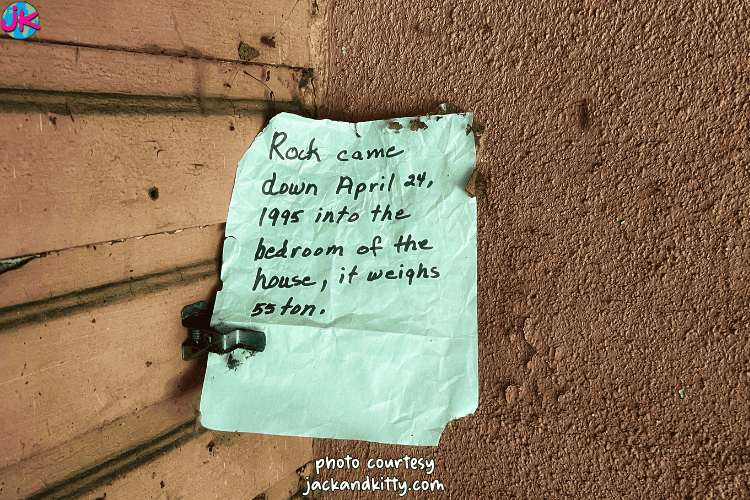 JK
Rock came
down April 24,
1995 into the
bedroom of the
house, it weighs
55 ton.
photo courtesy
jackandkitty.com